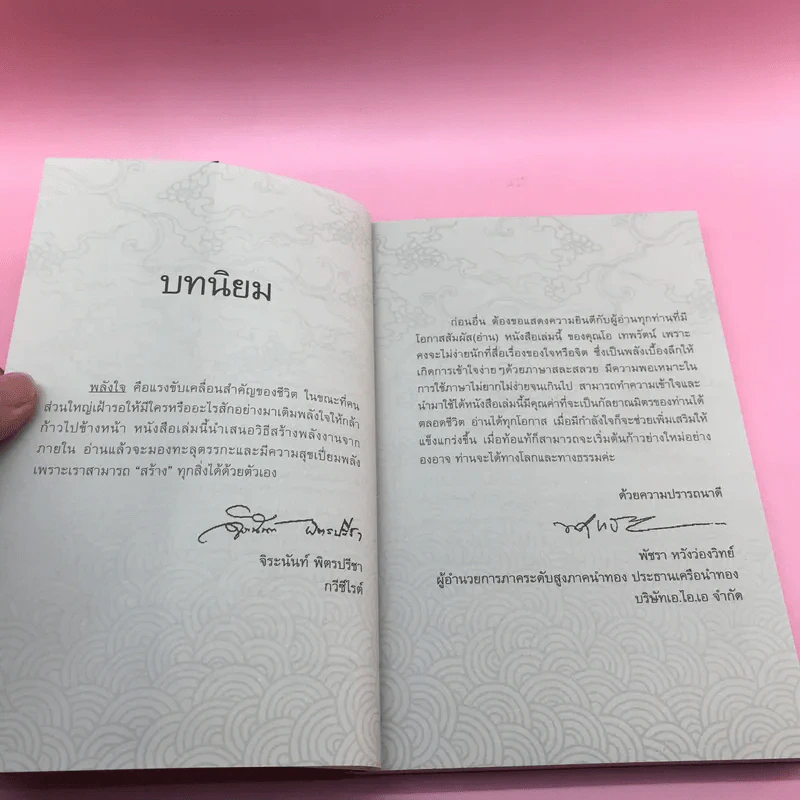 บทนิยม
พลังใจ คือแรงขับเคลื่อนสำคัญของชีวิต ในขณะที่คน
ส่วนใหญ่เฝ้ารอให้มีใครหรืออะไรสักอย่างมาเติมพลังใจให้กล้า
ก้าวไปข้างหน้า หนังสือเล่มนี้นำเสนอวิธีสร้างพลังงานจาก
ภายใน อ่านแล้วจะมองทะลุตรรกะและมีความสุขเปี่ยมพลัง
เพราะเราสามารถ “สร้าง” ทุกสิ่งได้ด้วยตัวเอง
จิระนันท์ พิตรปรีชา
จิระนันท์ พิตรปรีชา
กวีซีไรต์
ก่อนอื่น ต้องขอแสดงความยินดีกับผู้อ่านทุกท่านที่มี
โอกาสสัมผัส(อ่าน) หนังสือเล่มนี้ ของคุณโอ เทพรัตน์ เพราะ
คงจะไม่ง่ายนักที่สื่อเรื่องของใจหรือจิต ซึ่งเป็นพลังเบื้องลึกให้
เกิดการเข้าใจง่ายๆด้วยภาษาสละสลวย มีความพอเหมาะใน
การใช้ภาษาไม่ยากไม่ง่ายจนเกินไป สามารถทำความเข้าใจและ
นำมาใช้ได้หนังสือเล่มนี้มีคุณค่าที่จะเป็นกัลยาณมิตรของท่านได้
ตลอดชีวิต อ่านได้ทุกโอกาส เมื่อมีกำลังใจก็จะช่วยเพิ่มเสริมให้
แข็งแกร่งขึ้น เมื่อท้อแท้ก็สามารถจะเริ่มต้นก้าวย่างใหม่อย่าง
องอาจ ท่านจะได้ทางโลกและทางธรรมค่ะ
ด้วยความปรารถนาดี
พัชรา หวังว่องวิทย์
ผู้อำนวยการภาคระดับสูงภาคนำทอง ประธานเครือนำทอง
บริษัทเอ.ไอ.เอ จำกัด